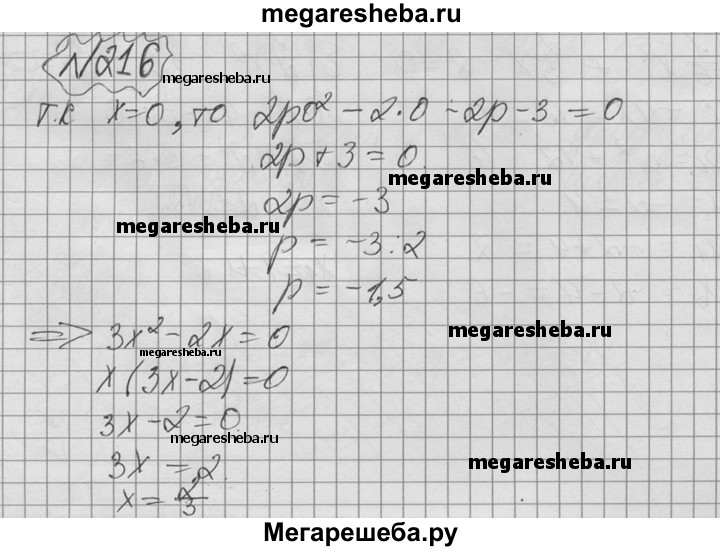 megaresheba.ru
№216
megaresheba.ru
т.к x=0, то 2p0² - 2·0 - 2p - 3 = 0
2p + 3 = 0
megaresheba.ru
2p = -3
megaresheba.ru
p = -3:2
p = -1,5
=> 3x² - 2x = 0
megaresheba.ru
megaresheba.ru
x(3x-2)=0
3x-2=0
megaresheba.ru
3x = 2
megaresheba.ru
x = 2/3
megaresheba.ru
Мегарешеба.ру